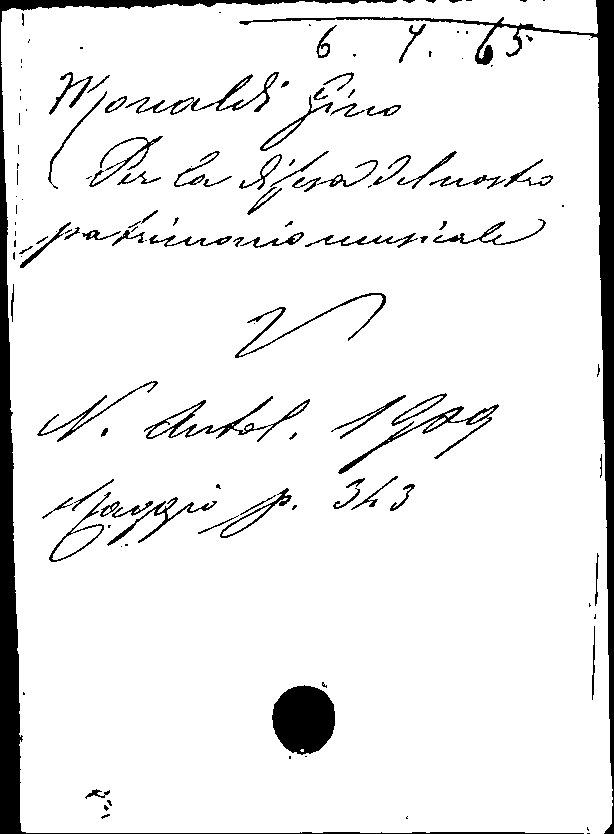 6. 4. 65
Monaldi Gino
( Per la difesa del nostro
patrimonio musicale
N. Antol. 1909
Maggio p. 343